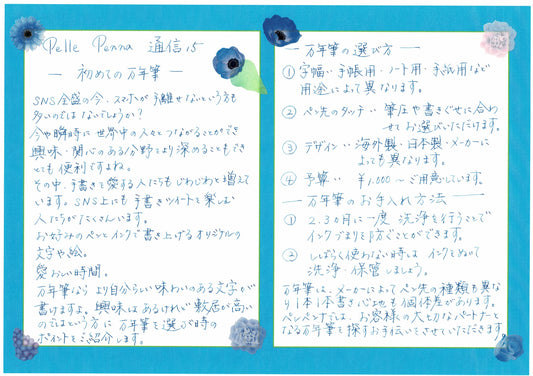 Pelle Penna 通信15
― 初めての万年筆 ―
SNS全盛の今、スマホが手離せないという方も
多いのではないでしょうか?
今や瞬時に世界中の人々とつながることができ
興味・関心のある分野をより深めることもでき
とても便利ですよね。
その中、手書きを愛する人たちもじわじわと増えて
います。SNS上にも手書きツイートを楽しむ
人たちがたくさんいます。
お好みのペンとインクで書き上げるオリジナルの
文字や絵。
愛おしい時間。
万年筆なら より自分らしい味わいのある文字が
書けますよ。興味はあるけれど敷居が高い
のではという方に 万年筆を選ぶ時の
ポイントをご紹介します。
― 万年筆の選び方 ―
① 字幅… 手帳用・ノート用・手紙用など
用途によって異なります。
② ペン先のタッチ… 筆圧や書きぐせに合わ
せてお選びいただけます。
③ デザイン… 海外製・日本製・メーカーに
よっても異なります。
④ 予算… ¥1,000〜ご用意しています。
― 万年筆のお手入れ方法 ―
① 2.3ヵ月に一度 洗浄を行うことで
インクづまりを防ぐことができます。
② しばらく使わない時は インクをぬいて
洗浄・保管しましょう。
万年筆は、メーカーによってペン先の種類も異な
り1本1本書きごこちも個体差があります。
ペンペンナでは、お客様の大切なパートナーと
なる万年筆を探すお手伝いをさせていただきます